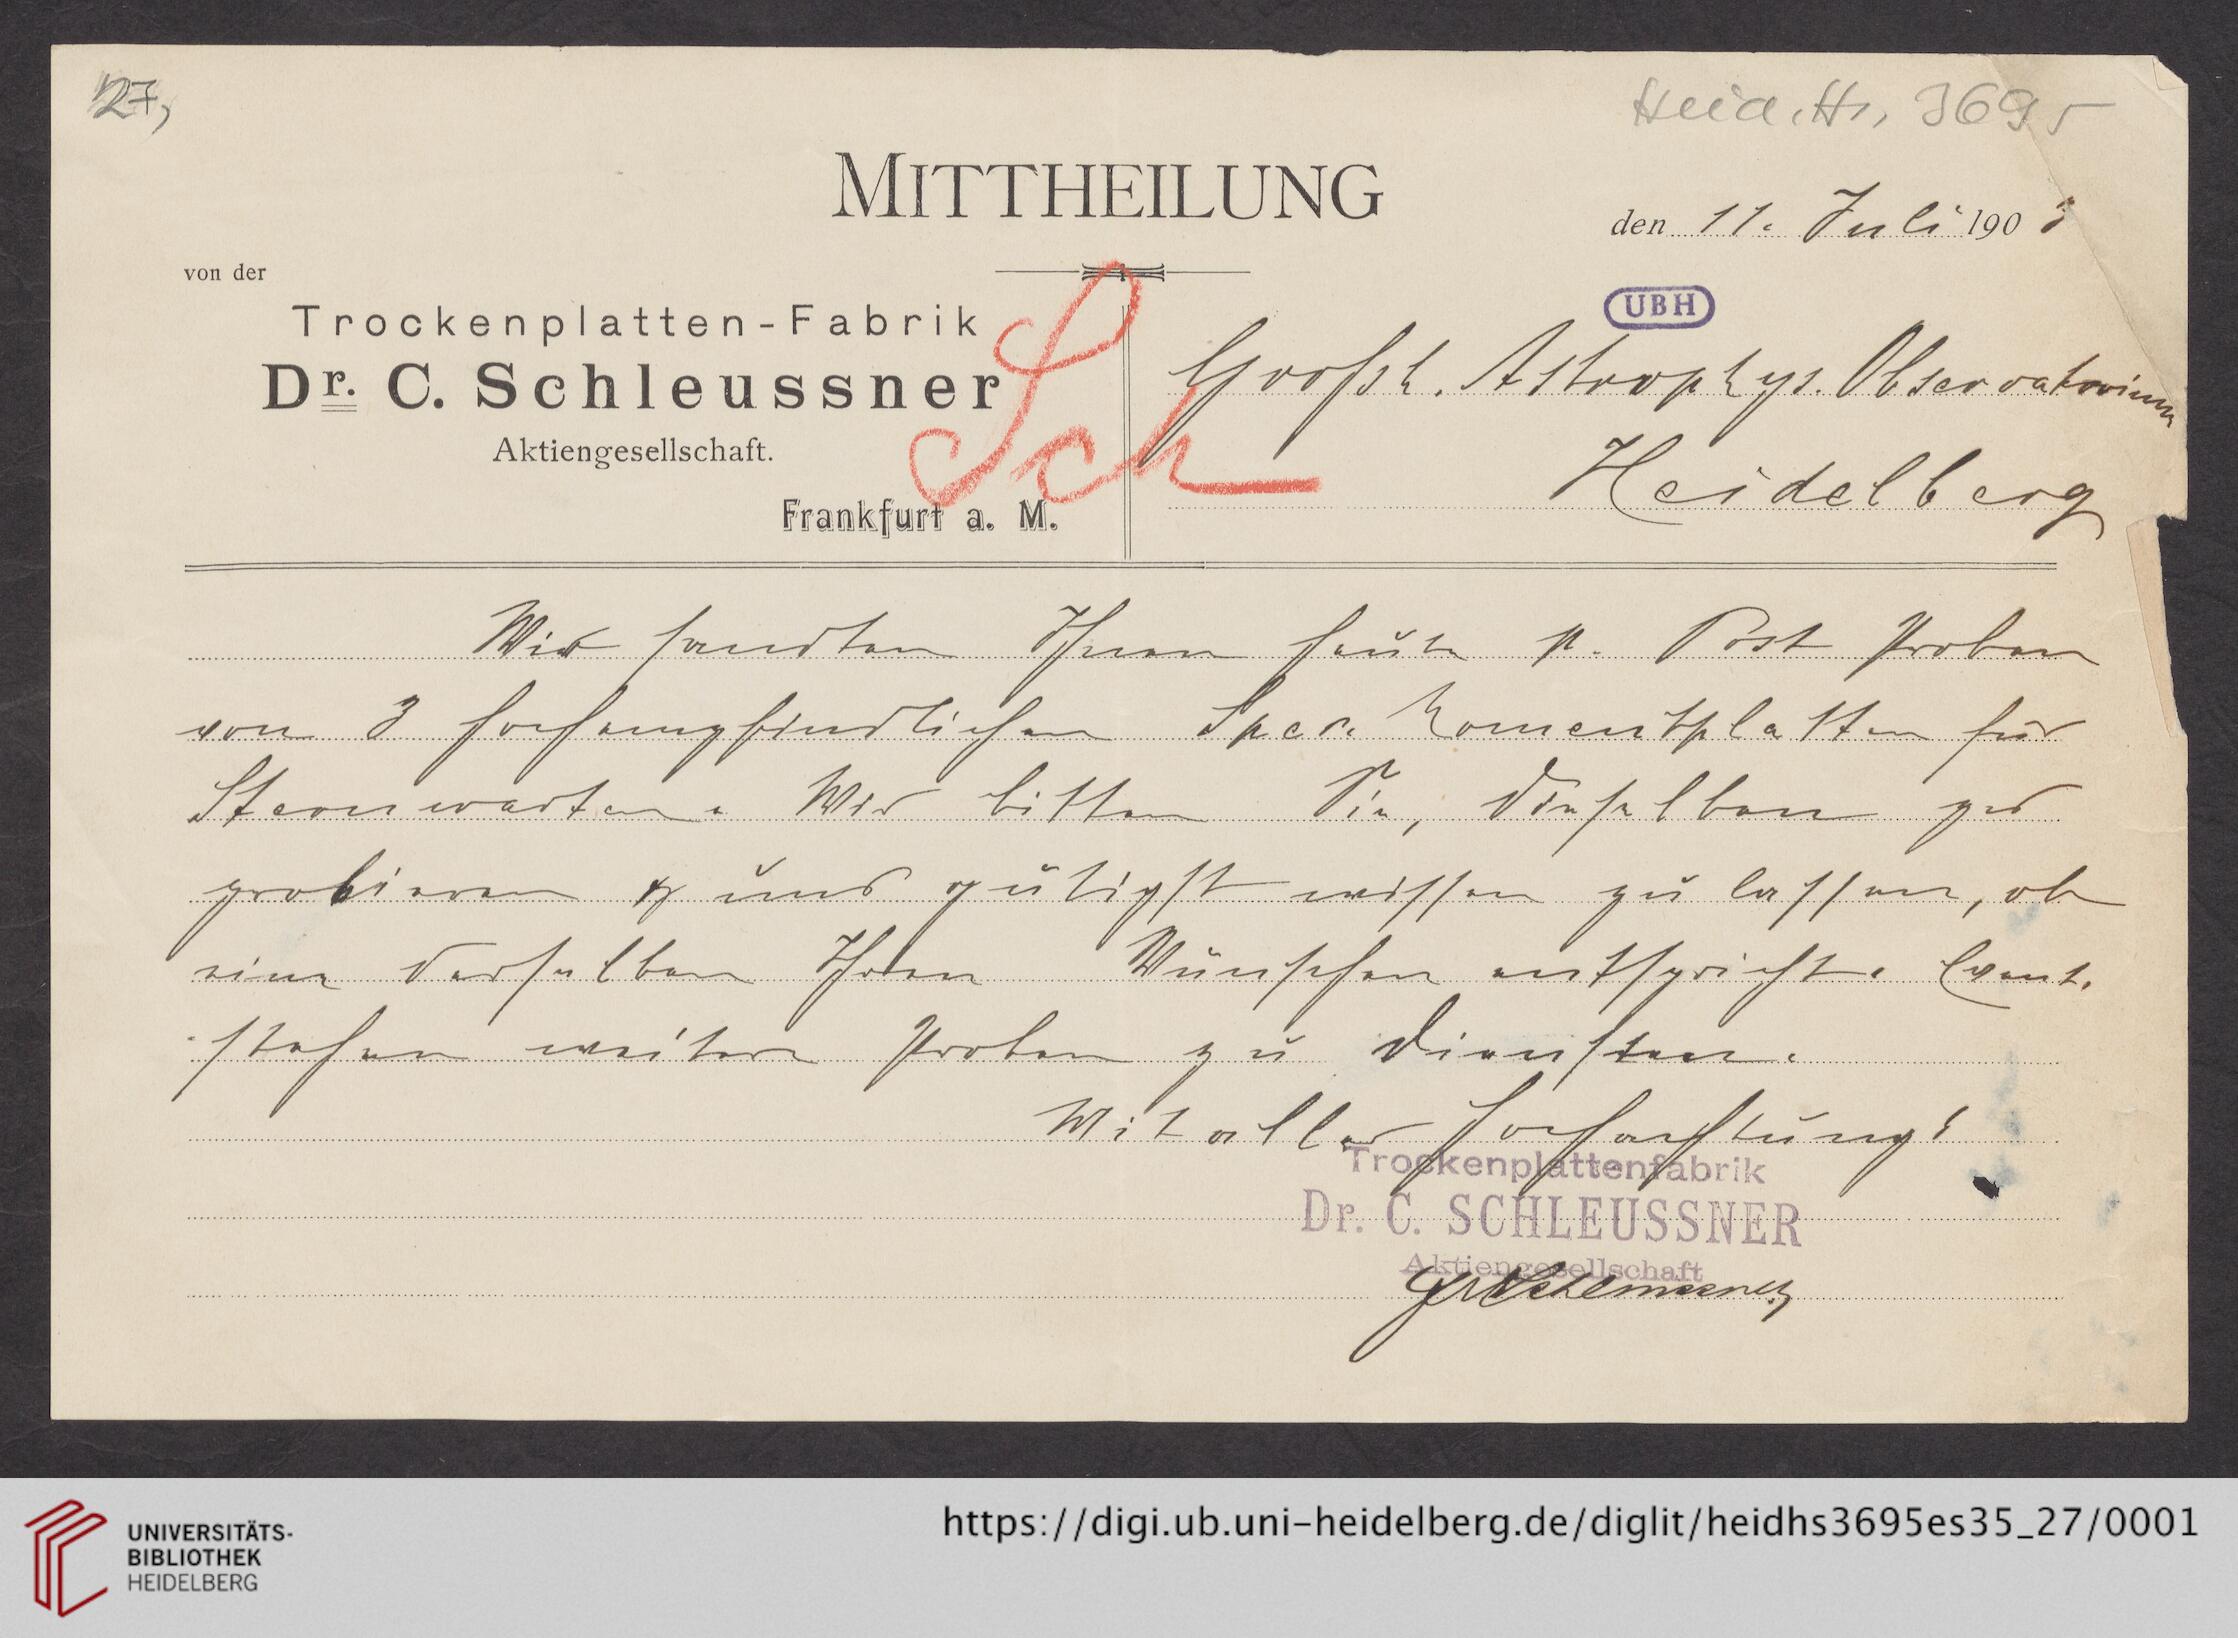 27,
Heid. Hs. 3695
MITTHEILUNG
den 11. Juli 190
von der
Trockenplatten-Fabrik
Dr. C. Schleussner
Aktiengesellschaft.
Frankfurt a. M.
Sch
UBH
Grossh. Astrophys. Observatorium
Heidelberg
Wir sandten Ihnen heute p. Post Proben
von 3 hochempfindlichen Spec. Momentplatten für
Sternwarten. Wir bitten Sie, dieselben zu
probieren & uns gütigst wissen zu lassen, ob
eine derselben Ihren Wünschen entspricht. Event.
stehen weitere Proben zu Diensten.
Mit aller Hochachtung!
Trockenplattenfabrik
Dr. C. SCHLEUSSNER
Aktiengesellschaft
Schleussner
UNIVERSITÄTS-
BIBLIOTHEK
HEIDELBERG
https://digi.ub.uni-heidelberg.de/diglit/heidhs3695es35_27/0001